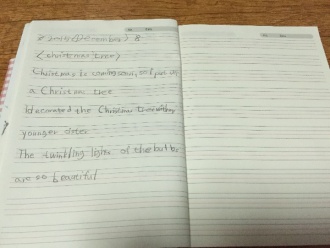 (christmas tree)
Christmas is coming soon, so I put up
a Christmas tree
I decorated the Christmas tree with my
younger sister
The twinkling lights of the bulbs
are so beautiful